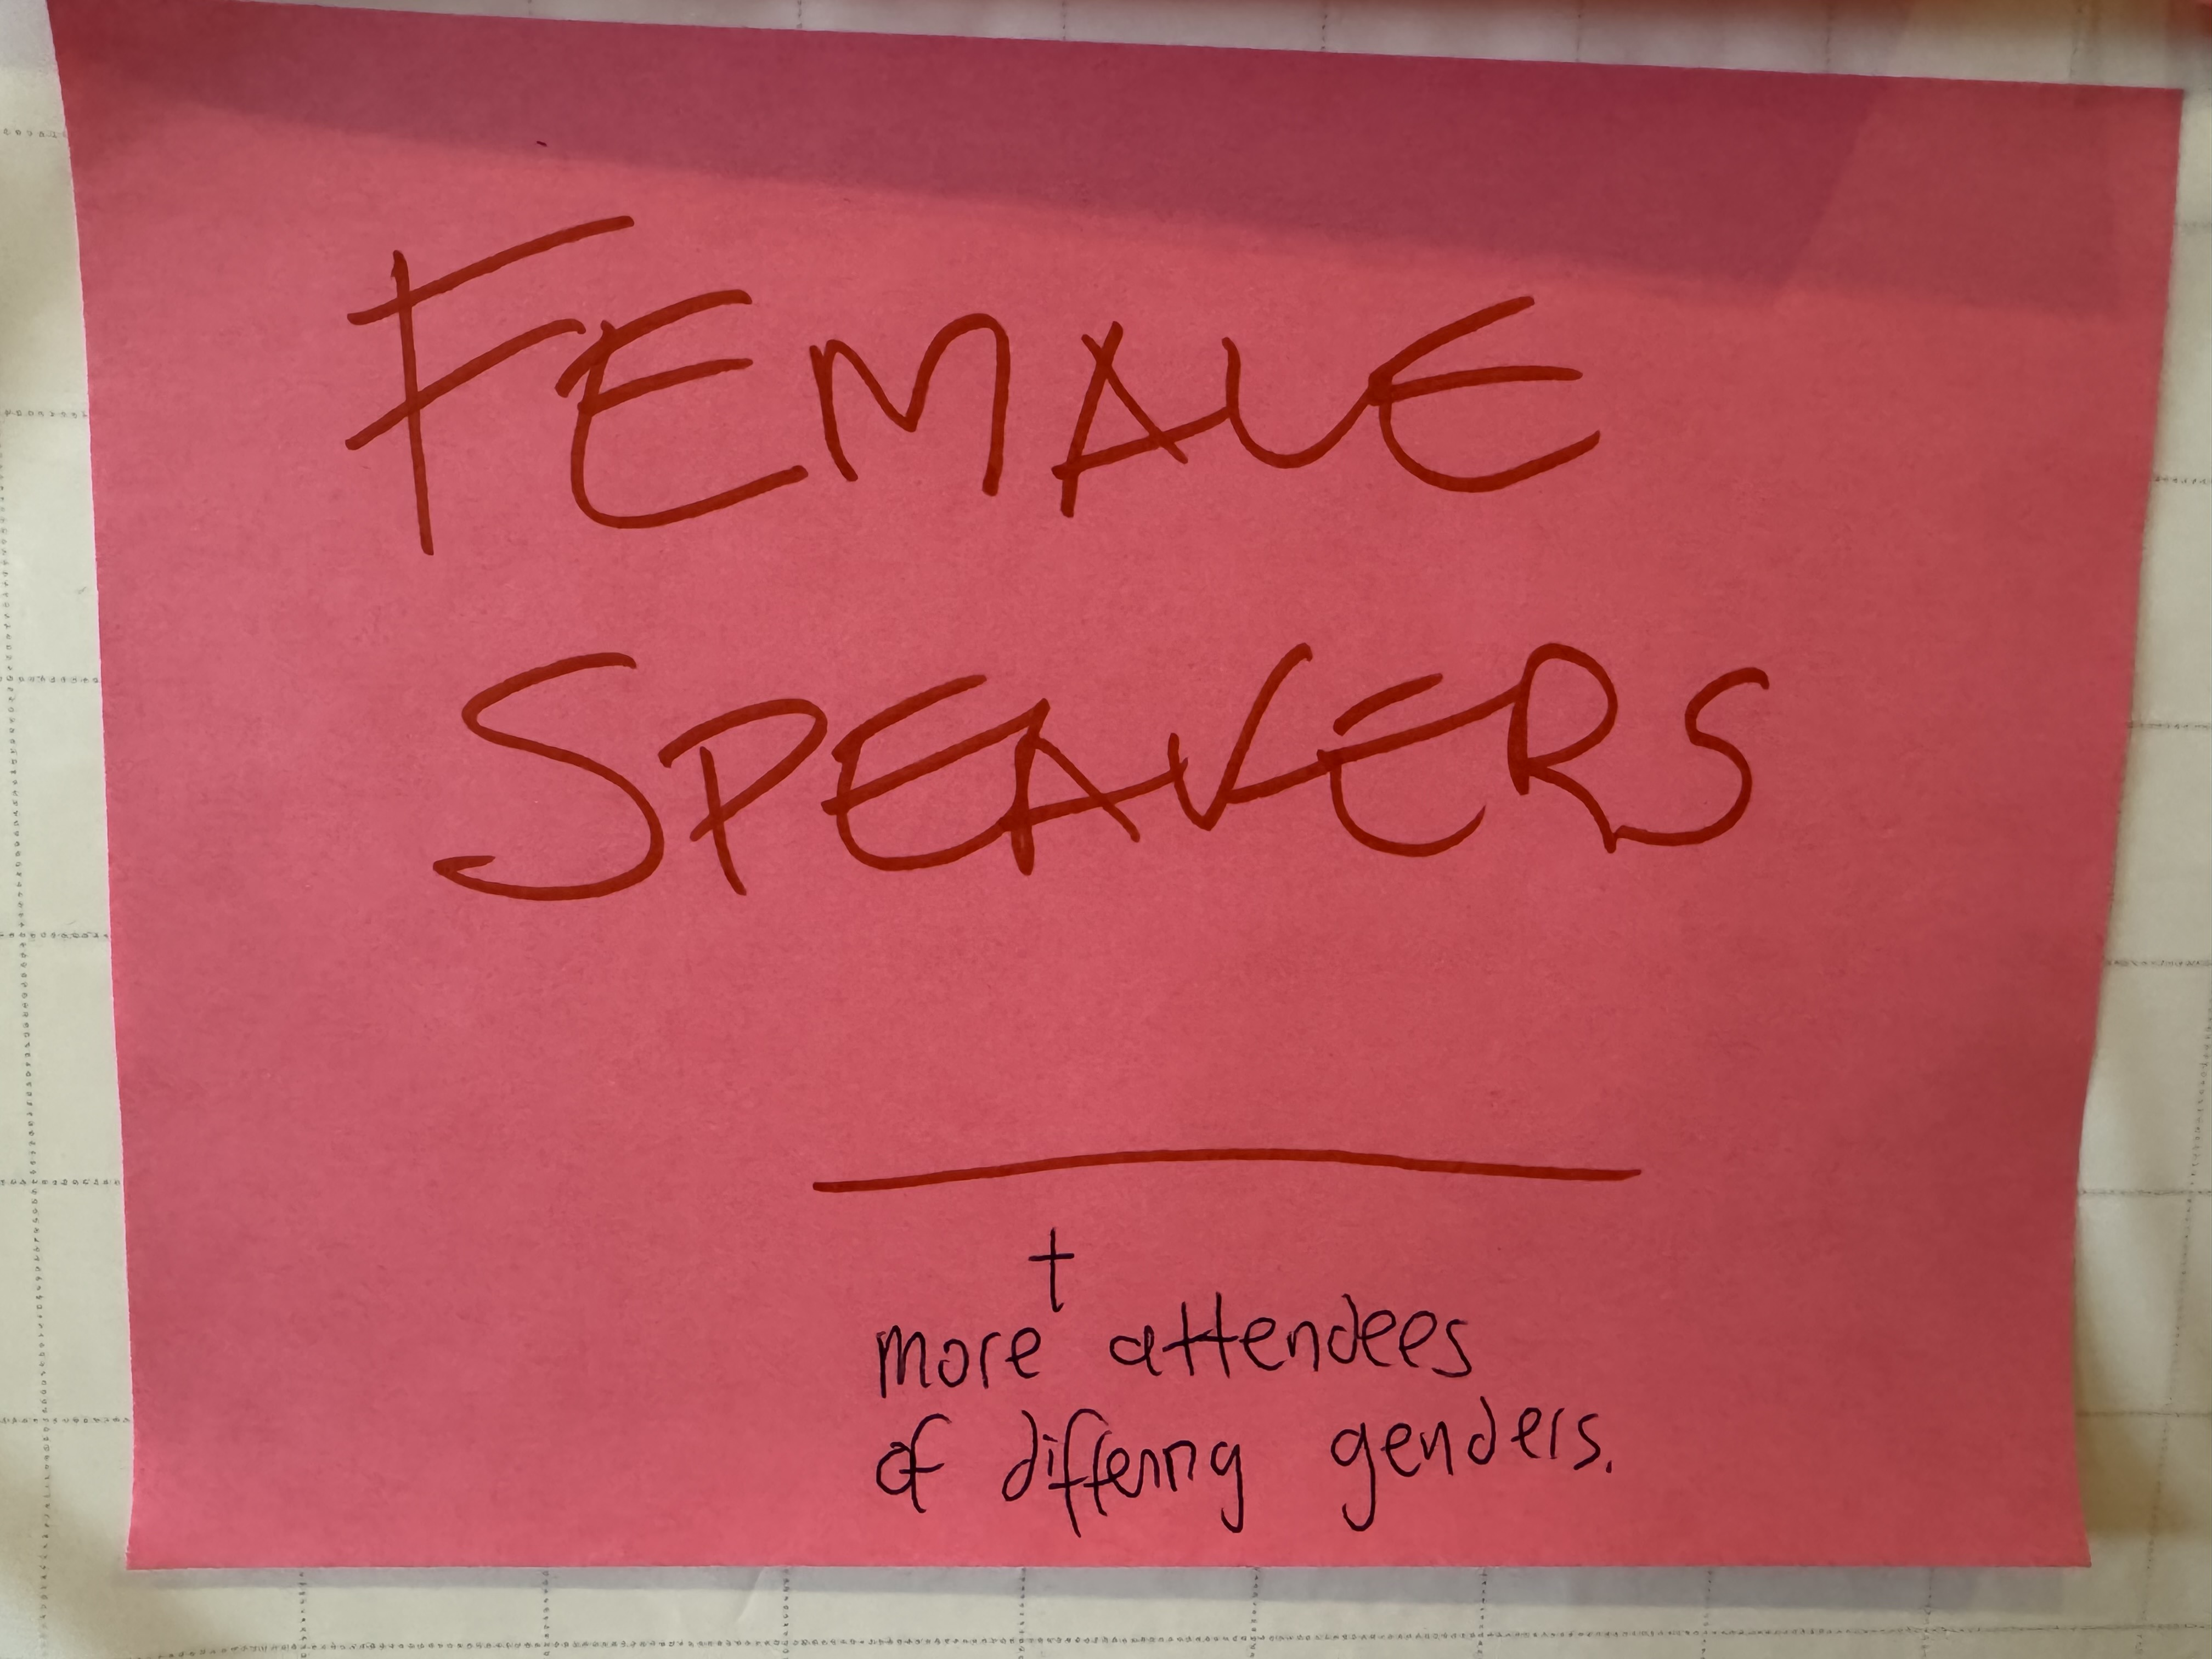 FEMALE
SPEAKERS
+
more attendees
of differing genders.